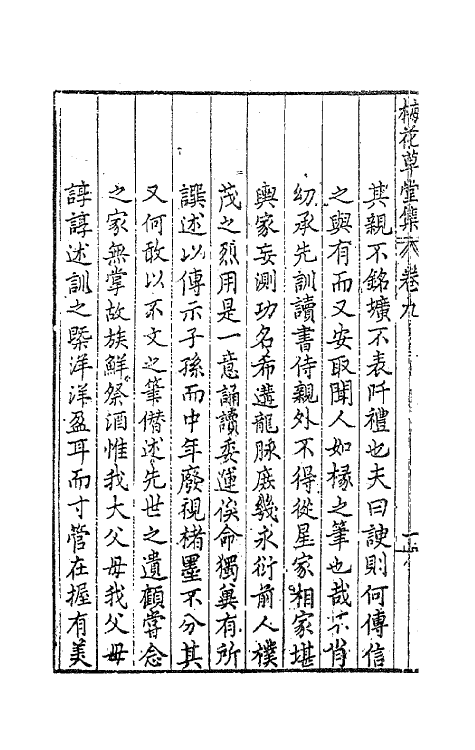 梅花草堂集 卷九
其親不銘壙不表阡禮也夫曰諛則何傳信
之與有而又安取聞人如椽之筆也哉不肖
幼承先訓讀書侍親外不得從星家相家堪
輿家妄測功名希遘龍脉庶幾永衍前人樸
茂之烈用是一意誦讀委運俟命獨冀有所
譔述以傳示子孫而中年廢視楮墨不分其
又何敢以不文之筆僭述先世之遺顧嘗念
之家無掌故族鮮祭酒惟我大父母我父母
諄諄述訓之槩洋洋盈耳而寸管在握有美